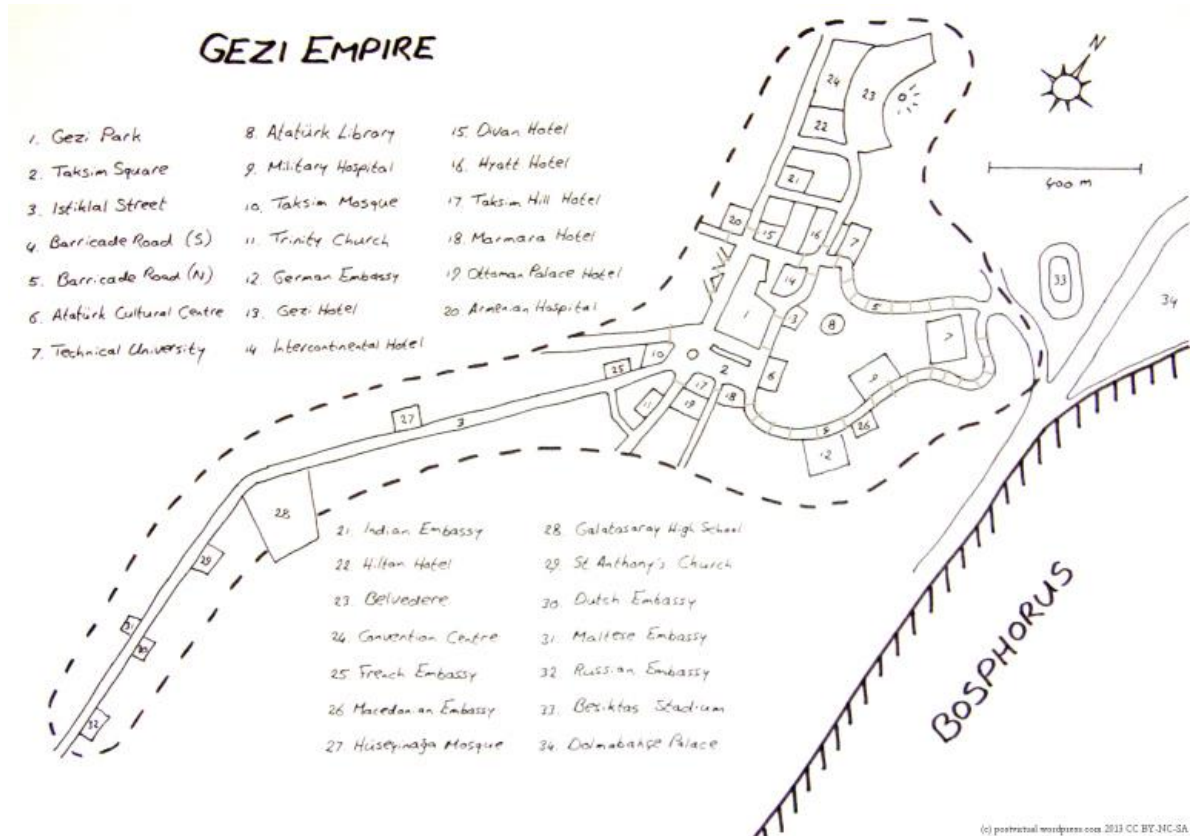 GEZI EMPIRE
1. Gezi Park
2. Taksim Square
3. Istiklal Street
4. Barricade Road (S)
5. Barricade Road (N)
6. Atatürk Cultural Centre
7. Technical University
8. Atatürk Library
9. Military Hospital
10. Taksim Mosque
11. Trinity Church
12 German Embassy
13. Gezi Hotel
14 Intercontinental Hotel
15. Divan Hotel
16. Hyatt Hotel
17 Taksim Hill Hotel
18. Marmara Hotel
19 Ottoman Palace Hotel
20 Armenian Hospital
N
400 m
24
23
22
21
20
15
16
7
14
5
33
34
1
13
8
7
10
2
6
9
25
17
18
11
19
8
26
12
27
3
28
29
31
30
32
21. Indian Embassy
22 Hilton Hotel
23 Belvedere
24 Convention Centre
25 French Embassy
26 Macedonian Embassy
27 Hüseyinağa Mosque
28 Galatasaray High School
29 St Anthony's Church
30 Dutch Embassy
31. Maltese Embassy
32 Russian Embassy
33. Besiktas Stadium
34. Dolmabahçe Palace
BOSPHORUS
(c) postvirtual.wordpress.com 2013 CC BY-NC-SA